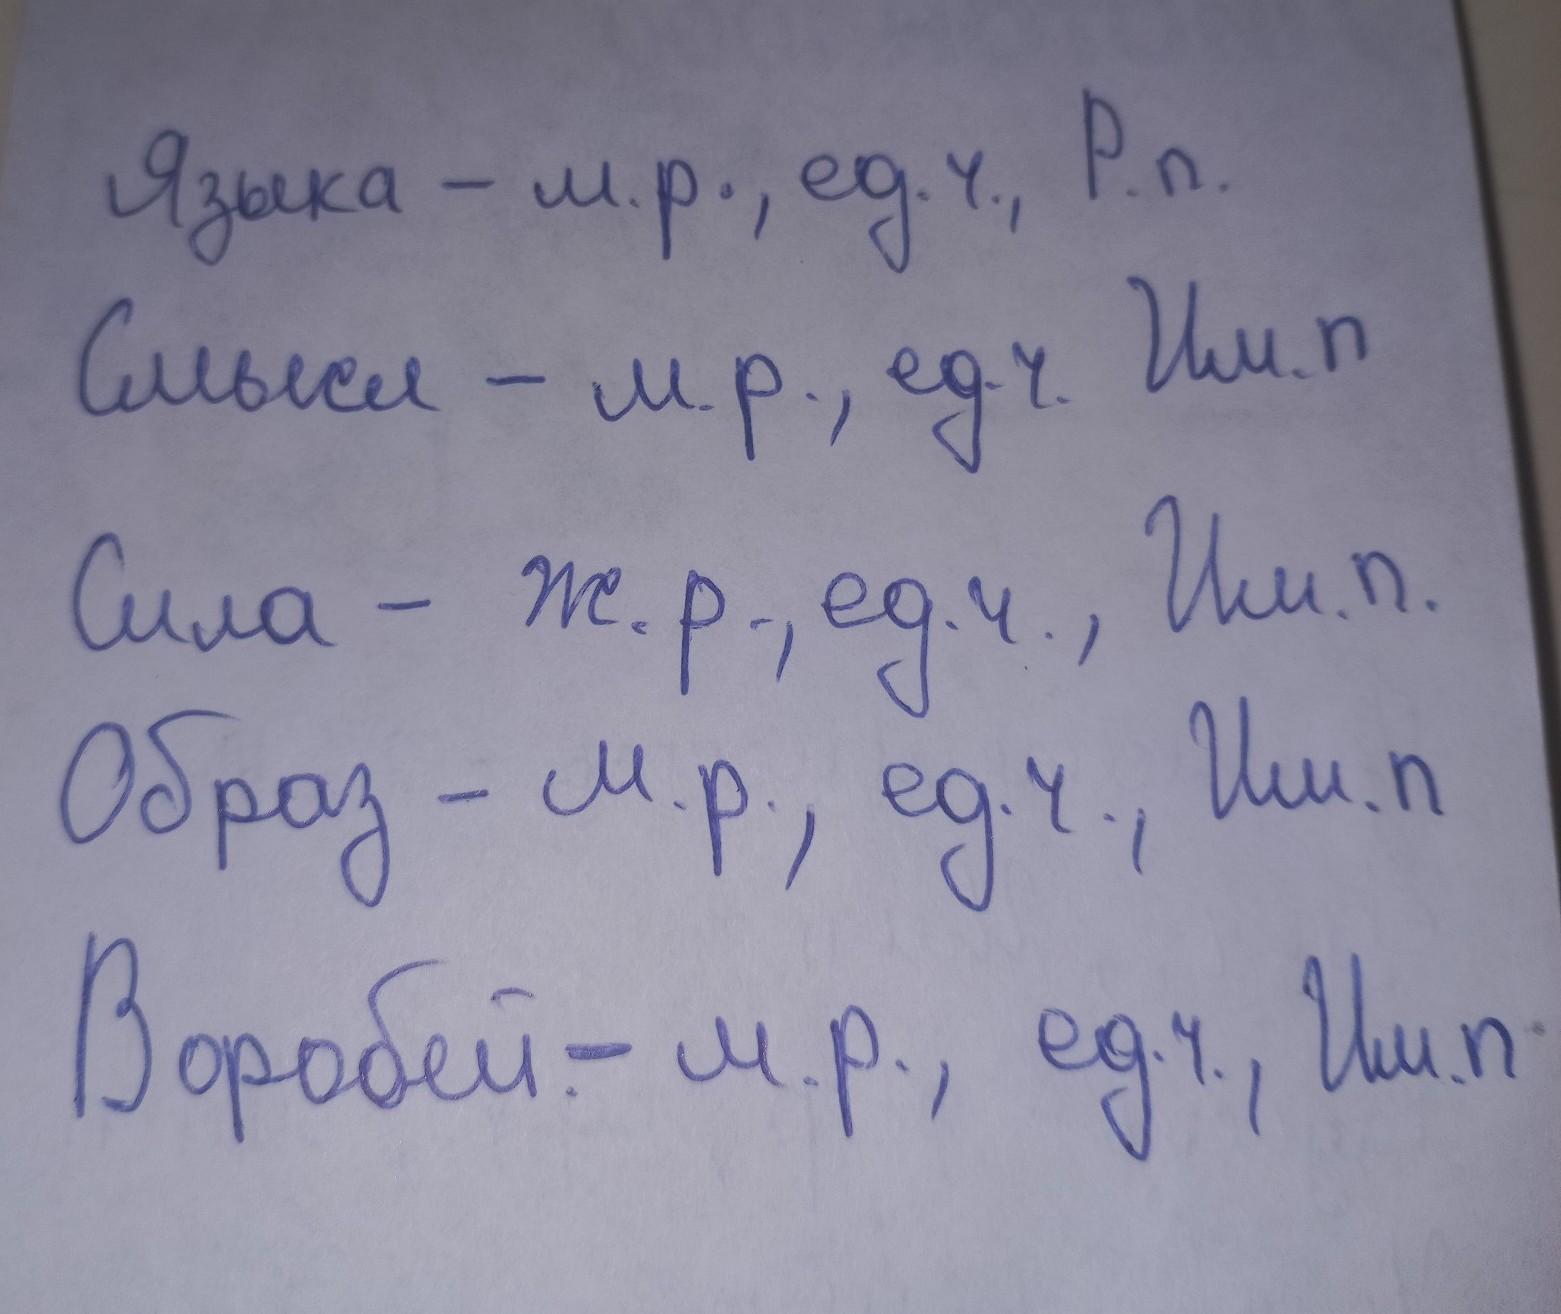 Языка - м.р., ед.ч., Р.п.
Смысл - м.р., ед.ч. Им.п
Сила - ж.р., ед.ч., Им.п.
Образ - м.р., ед.ч., Им.п
Воробей - м.р., ед.ч., Им.п